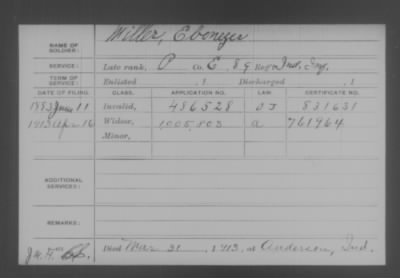 Miller, Ebenezer
NAME OF SOLDIER:
SERVICE: Late rank, P Co. E, 89 Reg't Ind. Inf.
TERM OF SERVICE: Enlisted , 1 Discharged , 1
DATE OF FILING. CLASS. APPLICATION NO. LAW CERTIFICATE NO.
1883 June 11 Invalid, 486528 831631
1913 Apr 16 Widow, 1,005,803 a 761964
Minor,
ADDITIONAL SERVICES:
REMARKS:
Died Mar 31, 1913, at Anderson, Ind.